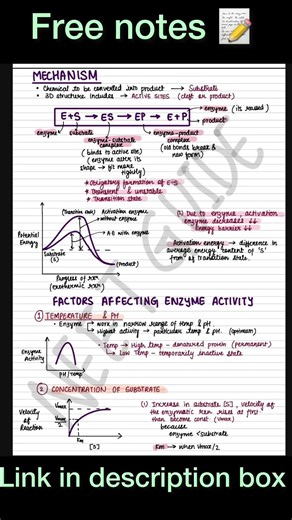 Free notes 📝
MECHANISM
• Chemical to be converted into product → Substrate
• 3D structure includes → ACTIVE SITES (cleft or pocket)
E+S → ES → EP → E+P
enzyme (its reused)
product
enzyme substrate
enzyme-substrate complex
(binds to active site)
(enzyme alters its shape → fit more tightly)
enzyme-product complex
(old bonds break & new form)
* Obligatory formation of E-S
* Transient & unstable
* Transition state
Potential Energy
(Transition state)
Activation energy without enzyme
A.E with enzyme
Substrate (S)
(Product)
Progress of rxn
(exothermic rxn)
(1) Due to enzyme, activation energy decreases ↓↓
Energy barrier ↓↓
Activation energy → difference in average energy content of 'S' from of transition state.
FACTORS AFFECTING ENZYME ACTIVITY
① TEMPERATURE & PH
• Enzyme
work in narrow range of temp & pH.
Highest activity → particular temp & pH. (optimum)
Enzyme Activity
PH / Temp
• Temp → High temp – denatured protein (permanent)
Low Temp – temporarily inactive state
② CONCENTRATION OF SUBSTRATE
Velocity of Reaction
Vmax
Vmax/2
Km
[S]
(1) Increase in substrate [S], velocity of the enzymatic rxn rises at first then become const (Vmax)
because
enzyme < substrate
Km → when Vmax/2
NEET GUIDE
Link in description box